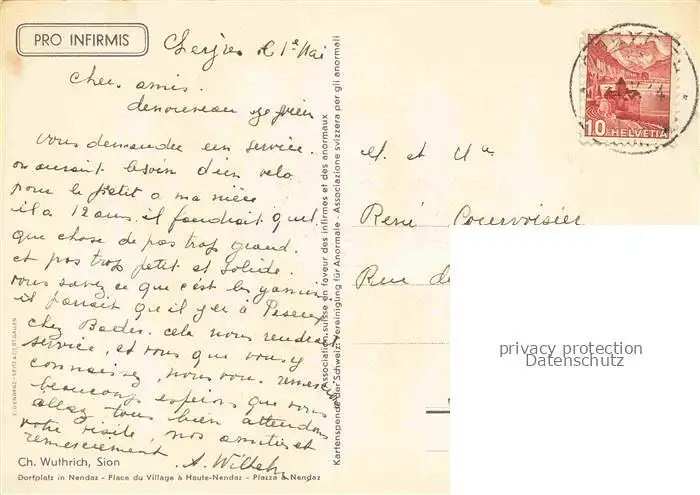 PRO INFIRMIS
le 1er Mai
Chers amis.
denouveau je vien
vous demander un service.
on aurait besoin d'un velo
pour le petit a ma nièce
il a 12 ans. il faudrait quel
que chose de pas trop grand.
et pas trop petit et solide.
vous savez ce que c'est les gamins
il parait qu'il y en a à Peseux
chez Bader. cela nous rendrait
service, et vous que vous y
connaissez, nous vou. remercie
beaucoup espérons que vous
allez tous bien attendons
votre visite, nos amitiés et
remerciement
Ch. Wuthrich, Sion
Dorfplatz in Nendaz - Place du Village à Haute-Nendaz - Piazza a Nendaz
Association suisse en faveur des infirmes et des anormaux
Kartenspende der Schweiz. Vereinigung für Anormale - Associazione svizzera per gli anormali
10 HELVETIA
M. et Mme
René Courvoisier
Rue de
privacy protection
Datenschutz